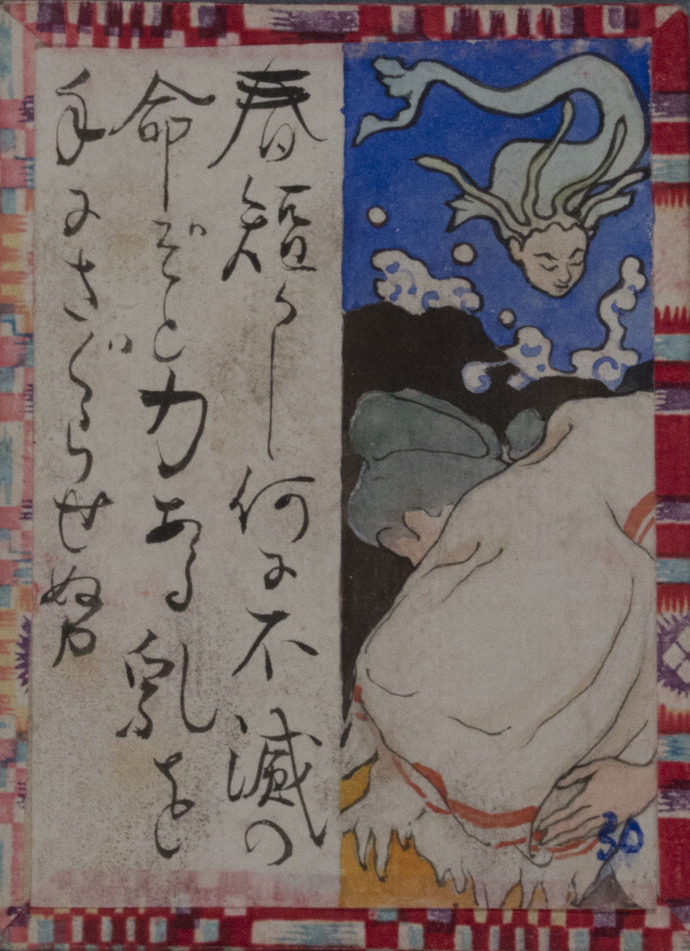 春短かし何に不滅の
命ぞと力ある乳を
手にさぐらせぬ
30